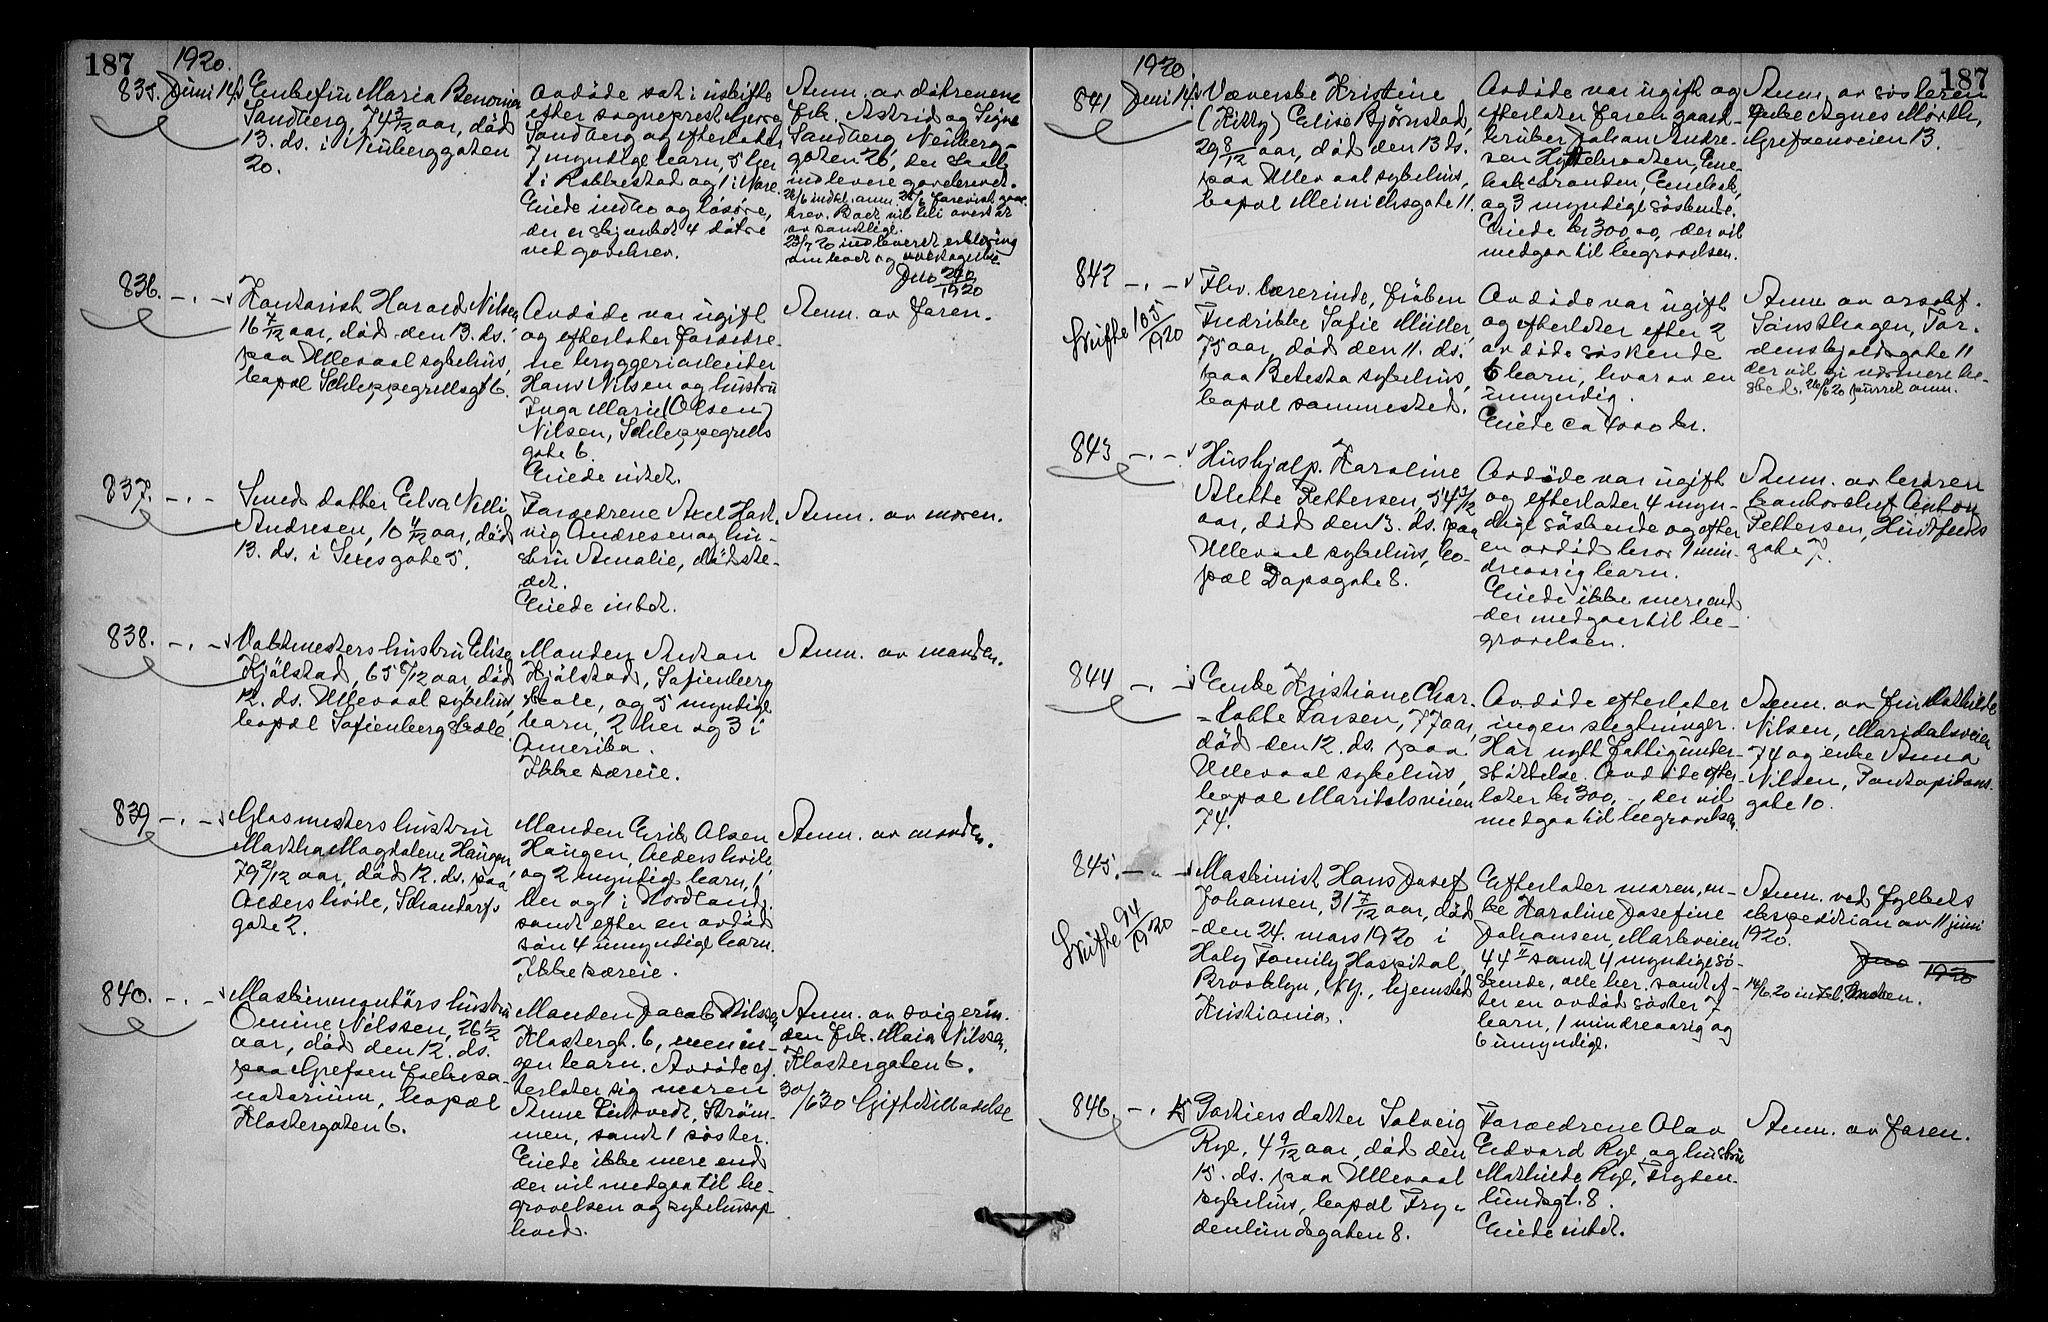 187
1920.
835. Juni 14.
Enkefru Maria Benonia
Sandberg, 74 3/12 aar, död
13. ds. i Neuberggaten
20.
Avdöde sat i uskifte
efter sogneprest
Sandberg og efterlater
7 myndige barn, 5 her
1 i Rakkestad og 1 i
Eiede indbo og lösöre,
der er skjænket 4 dötre
ved gavebrev.
Anm. av dötrenene
frk. Astrid og Signe
Sandberg, Neuberg-
gaten 20, der skal
indlevere gavebrevet.
av samtlige.
indleveret erklæring
1920
836. - . -
Kontorist Harald Nilsen
16 7/12 aar, död den 13. ds.
paa Ullevaal sykehus,
bopæl Schleppegrellsgt 6.
Avdöde var ugift
og efterlater foreldre-
ne bryggeriarbeider
Hans Nilsen og hustru
Inga Marie (Olsen)
Nilsen, Schleppegrells
gate 6.
Eiede intet.
Anm. av faren.
837. - . -
Smed datter Elva Nelli
Andresen, 10 4/12 aar, död
13. ds. i Sexesgate 5.
Foreldrene Axel Hart-
vig Andresen og hu-
stru Amalie, dödste-
det.
Eiede intet.
Anm. av moren.
838. - . -
Vaktmesters hustru Elise
Kjölstad, 65 8/12 aar, död
12. ds. Ullevaal sykehus,
bopæl Sofienberg skole
Manden Anton
Kjölstad, Sofienberg
skole, og 5 myndige
barn, 2 her og 3 i
Amerika.
Ikke særeie.
Anm. av manden.
839 - . -
Glasmesters hustru
Martha Magdalene Haugen,
79 2/12 aar, död 12. ds. paa
Aldershvile, Schandorfs
gate 2.
Manden Erik Olsen
Haugen, Aldershvile,
og 2 myndige barn, 1
her og 1 i Nordland,
samt efter en avdöd
sön 4 umyndige barn.
Ikke særeie.
Anm. av manden.
840. - . -
Maskinmontörs hustru
Omine Nilssen, 26 1/2
aar, död den 12. ds.
paa Grefsen folkesa-
natorium, bopæl
Klostergaten 6.
Manden Jacob Nilssen
Klostergt. 6, men in-
gen barn. Avdöde ef-
terlater sig moren
Anne Lintvedt, Ström-
men, samt 1 söster.
Eiede ikke mere end
der vil medgaa til be-
gravelsen og sykehusop
hold.
Anm. av svigerin-
den frk. Maia Nilssen,
Klostergaten 6.
187
1920.
841 Juni 14.
Væverske Kristine
(Kitty) Elise Björnstad,
29 8/12 aar, död den 13 ds.
paa Ullevaal sykehus,
bopæl Meinichsgate 11.
Avdöde var ugift og
efterlater faren gaard-
bruker Johan Andre-
sen
og 3 myndige söskende.
Eiede kr 300.00, der vil
medgaa til begravelsen.
Anm. av sösteren
enke Agnes Mörth,
Grefsenveien 13.
842 - . -
Skifte 105/1920
Fhv. lærerinde, fröken
Fredrikke Sofie Müller,
75 aar, död den 11. ds.
paa Betesta sykehus,
bopæl sammested.
Avdöde var ugift
og efterlater efter 2
avdöde söskende
6 barn, hvorav en
umyndig.
Eiede ca 4000 kr.
Anm av
Tönsthagen, Tor-
denskjoldsgate 11
der vil gi nærmere be-
sked. 26/6 20 purret anm.
843 - . -
Hushjelp. Karoline
Alette Pettersen, 54 3/12
aar, död den 13. ds. paa
Ullevaal sykehus, bo-
pæl Dapsgate 8.
Avdöde var ugift
og efterlater 4 myn-
dige söskende og efter
en avdöd bror 1 min-
dreaarig barn.
Eiede ikke mere end
der medgaar til be-
gravelsen.
Anm. av broren
kontorchef Anton
Pettersen, Huitfelds
gate 7.
844 - . -
Enke Kristiane Char-
lotte Larsen, 77 aar,
död den 12. ds. paa
Ullevaal sykehus,
bopæl Maridalsveien
74.
Avdöde efterlater
ingen slegtninger.
Har nydt fattigunder-
stöttelse. Avdöde efter-
later kr 300, -, der vil
medgaa til begravelsen.
Anm. av fru Mathilde
Nilsen, Maridalsveien
74 og enke Anna
Nilsen, Pontoppidans
gate 10.
845. - . -
Skifte 94/1920
Maskinist Hans Josef
Johansen, 31 7/12 aar, död
den 24. mars 1920 i
Holy Family Hospital,
Brooklyn, Ny., hjemsted
Kristiania.
Efterlater moren, en-
ke Karoline Josefine
Johansen, Markveien
44 II samt 4 myndige sö-
skende, alle her. samt ef-
ter en avdöd söster 7
barn, 1 mindreaarig og
6 umyndige.
Anm. ved fylkets
ekspedition av 11 juni
1920.
1920
846. - . 15
Portiers datter Solveig
Rye, 4 9/12 aar, död den
15. ds. paa Ullevaal
sykehus, bopæl Fry-
denlundsgaten 8.
Foreldrene Olav
Edvard Rye og hustru
Mathilde Rye, Fryden-
lundsgt. 8.
Eiede intet.
Anm. av faren.